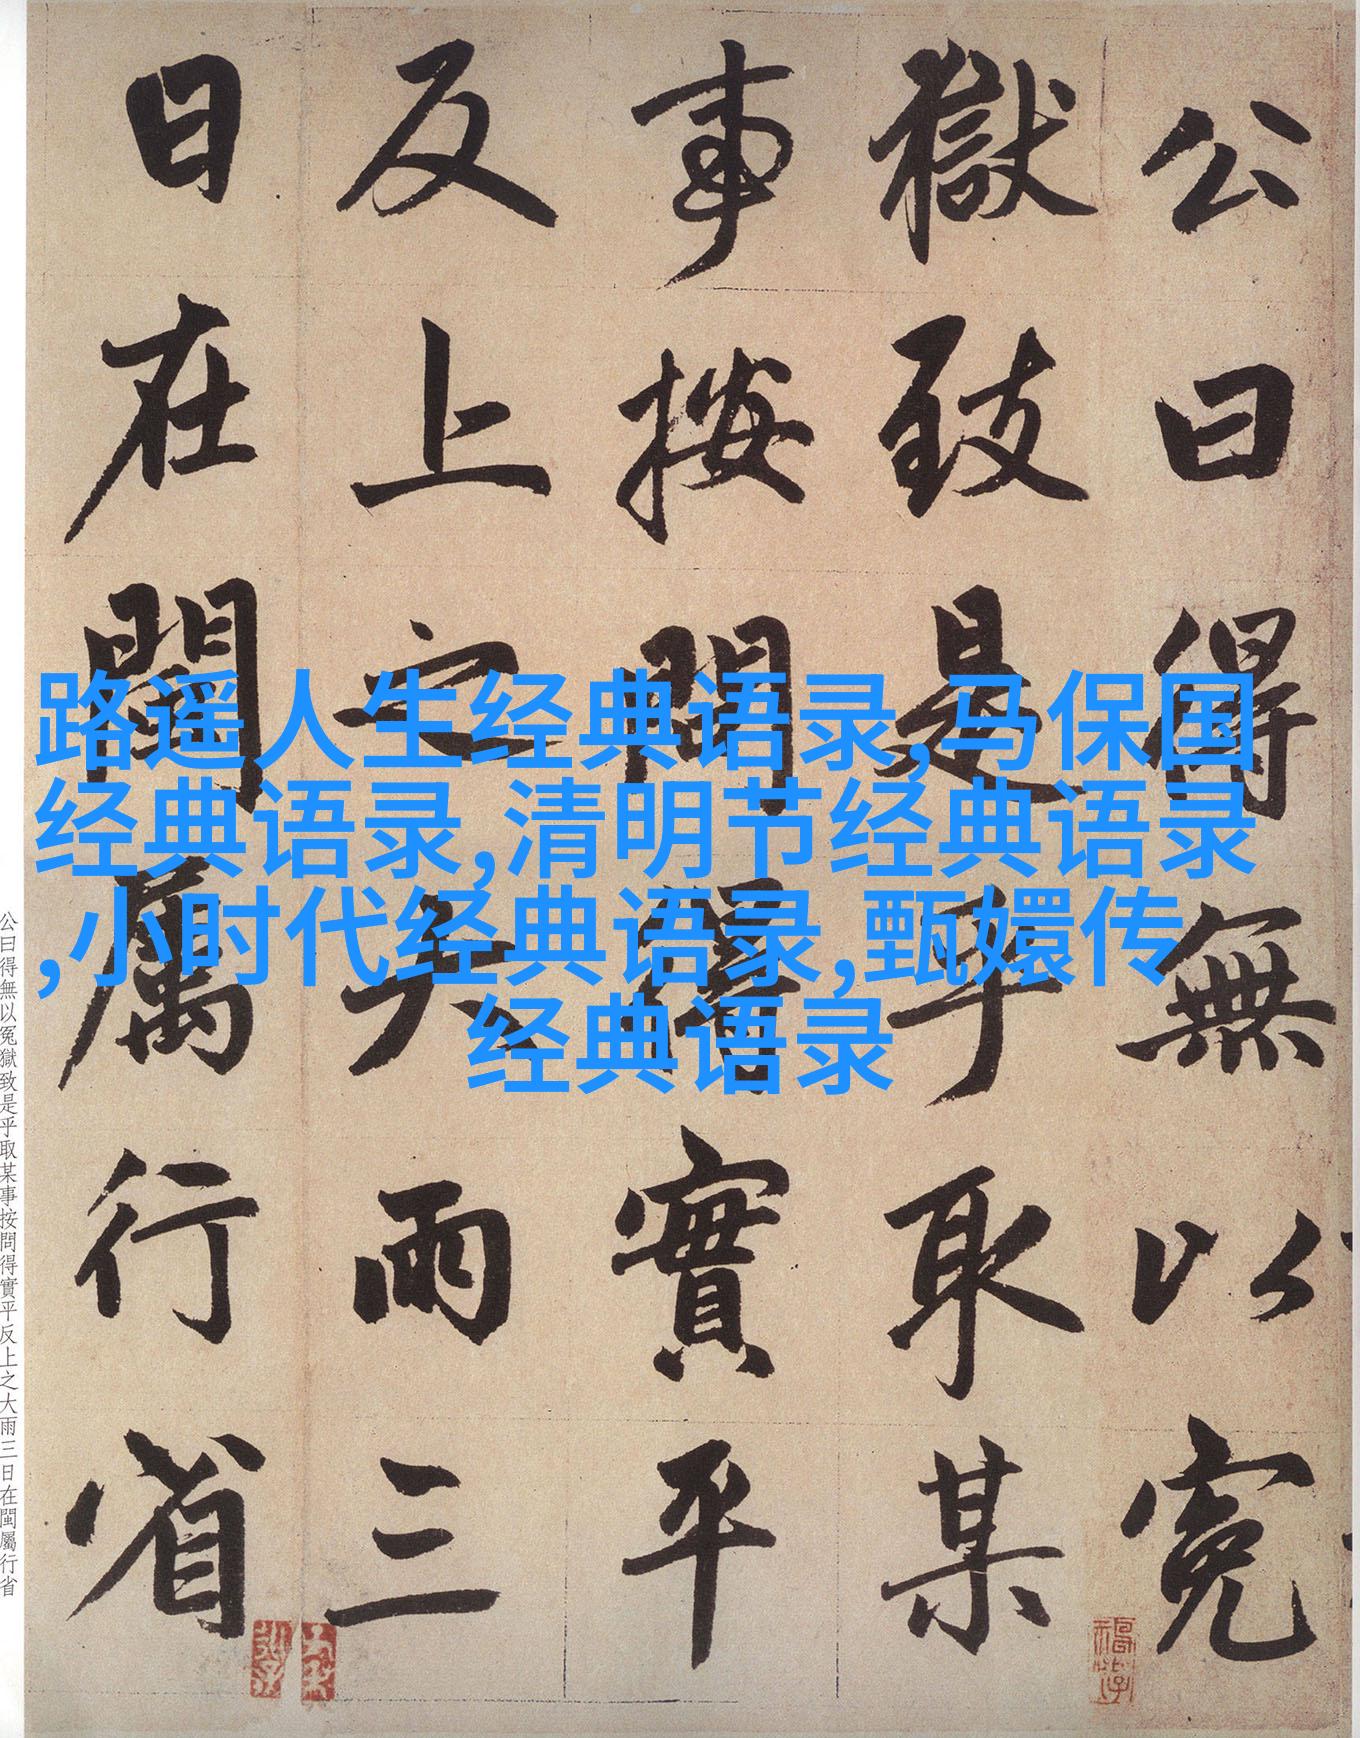 公曰得無以冤
獄致是乎取某
事按問得實平
反上之大雨三
日在閩屬行省
路遥人生经典语录,马保国
经典语录,清明节经典语录
,小时代经典语录,甄嬛传
经典语录
公曰得無以冤獄致是乎取某事按問得實平反上之大雨三日在閩屬行省